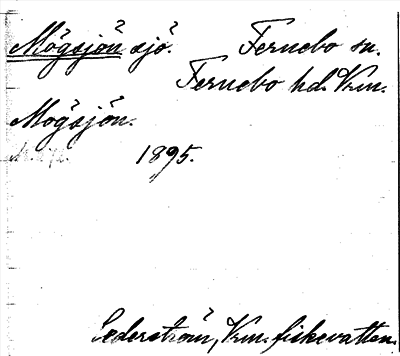 Mögsjön sjö. Fernebo sn.
Fernebo hd. Vrm.
Mögsjön.
1895.
Cederström, Vrm. fiskevatten.